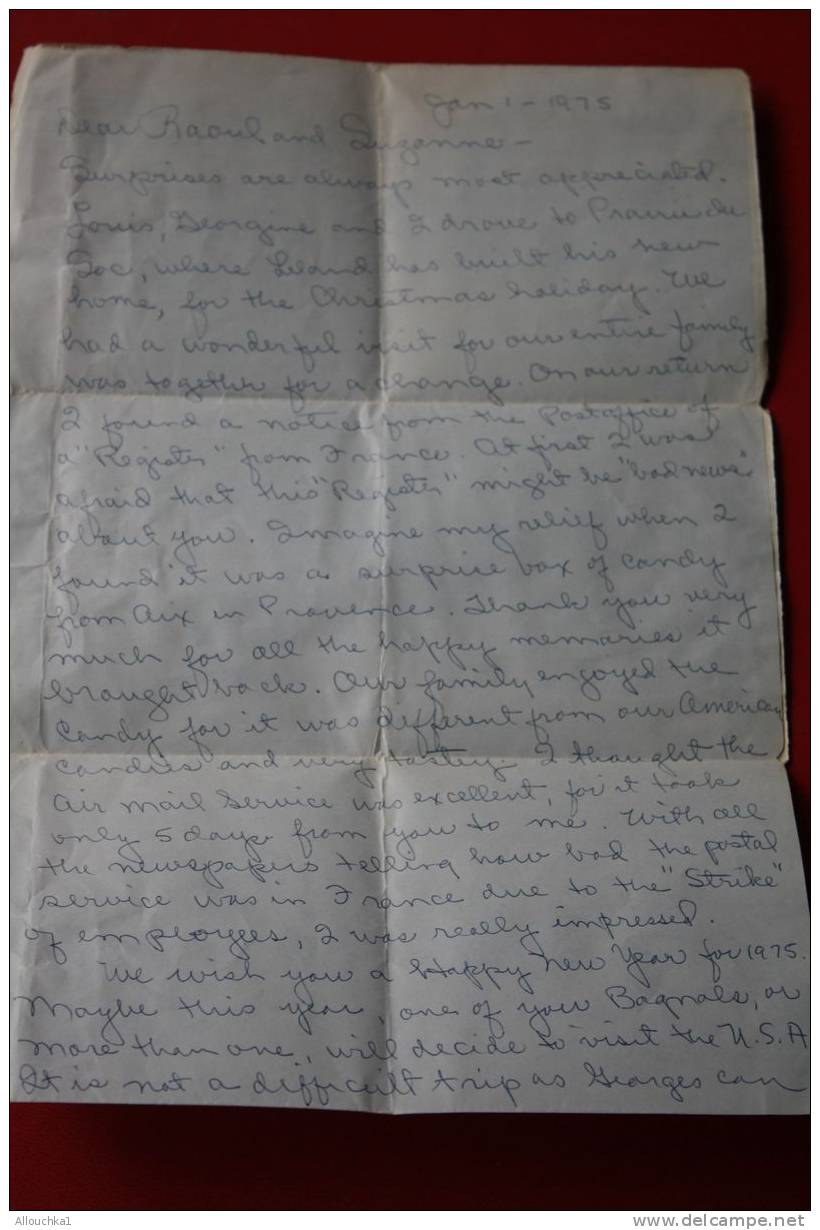 Jan 1 - 1975
Dear Raoul and Suzanne -
Surprises are always most appreciated.
Louis, Georgine and I drove to Prairie du
Sac, where Leland has built his new
home, for the Christmas holiday. We
had a wonderful visit for our entire family
was together for a change. On our return
I found a notice from the Postoffice of
a "Register" from France. At first I was
afraid that this "Register" might be "bad news"
about you. Imagine my relief when I
found it was a surprise box of candy
from Aix in Provence. Thank you very
much for all the happy memories it
brought back. Our family enjoyed the
candy for it was different from our American
candies and very tasty. I thought the
air mail service was excellent, for it took
only 5 days from you to me. With all
the newspapers telling how bad the postal
service was in France due to the "Strike"
of employees, I was really impressed.
We wish you a Happy New Year for 1975.
Maybe this year, one of you Bagnols, or
more than one, will decide to visit the U.S.A
It is not a difficult trip as Georges can
Allouchka1
www.delcampe.net